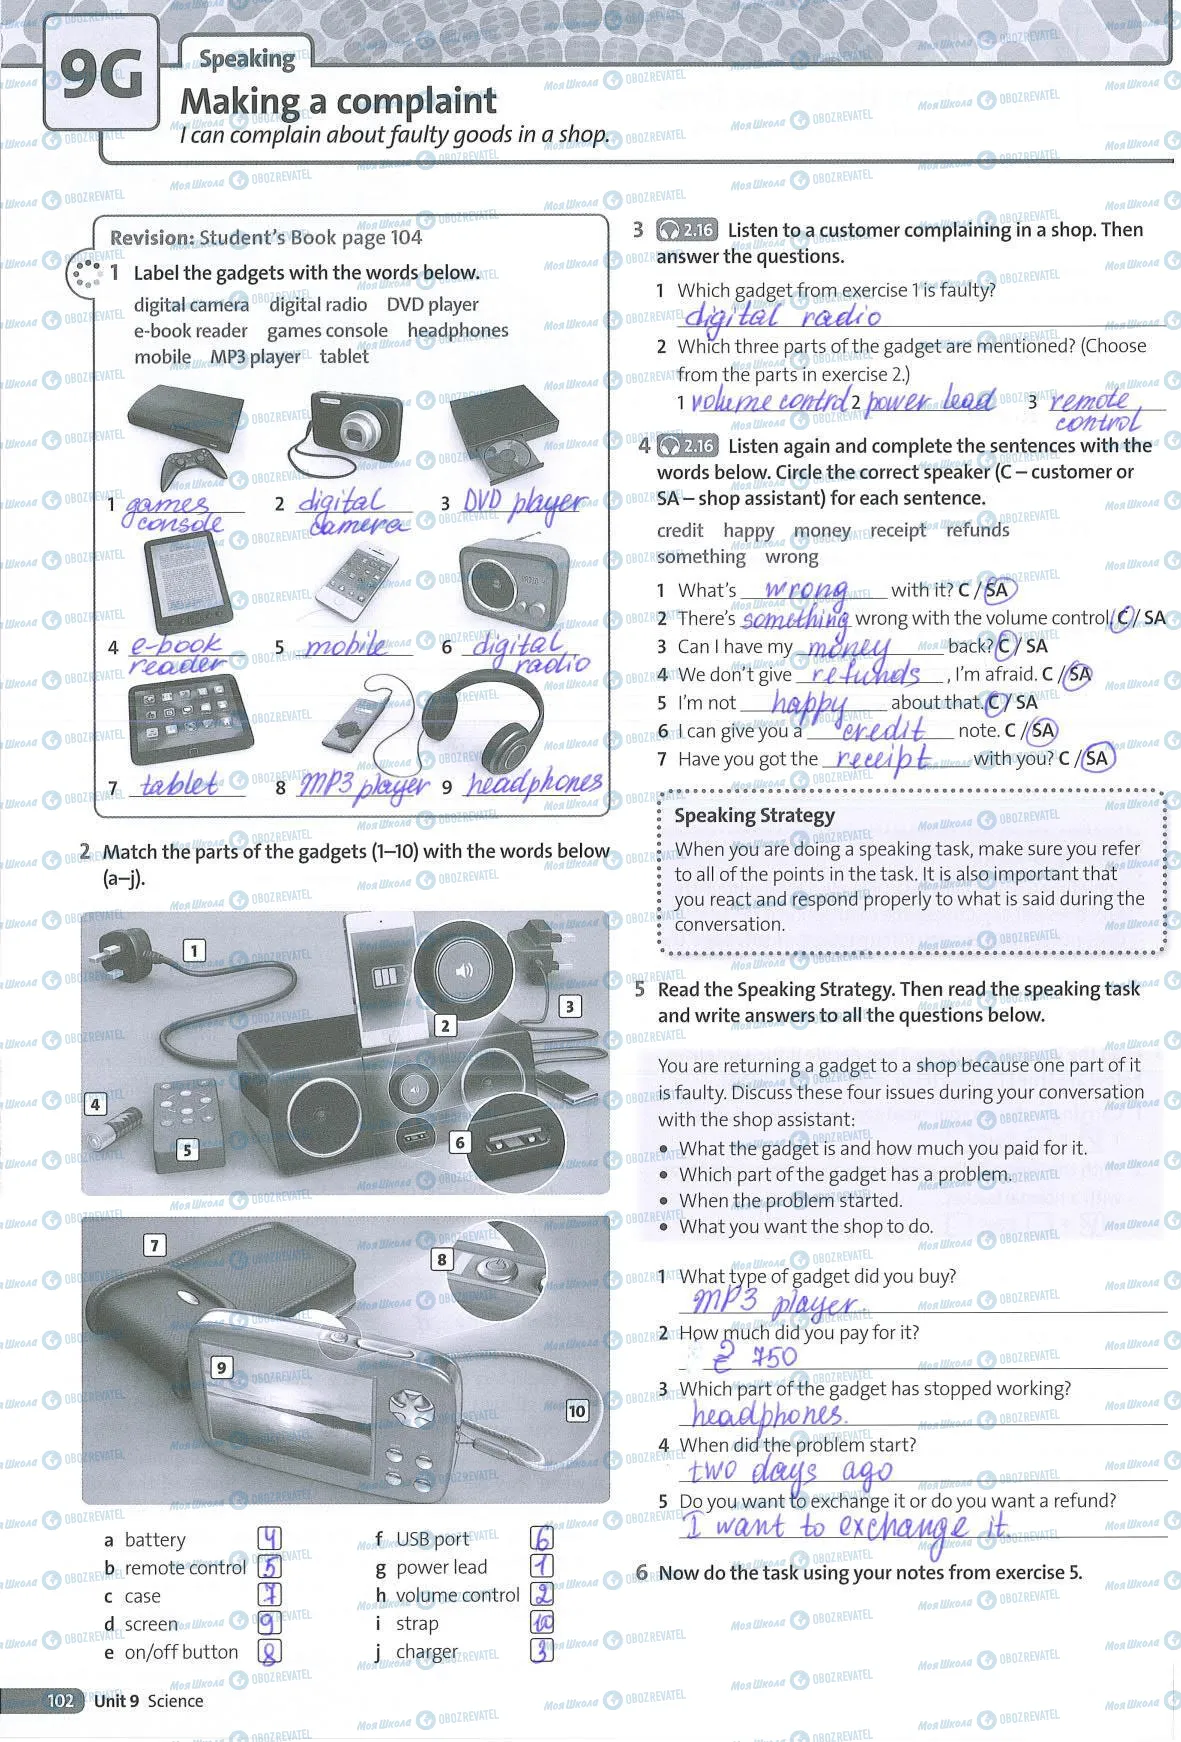 9G
Speaking
Making a complaint
I can complain about faulty goods in a shop.
Revision: Student's Book page 104
1 Label the gadgets with the words below.
digital camera digital radio DVD player
e-book reader games console headphones
mobile MP3 player tablet
1 games console
2 digital camera
3 DVD player
4 e-book reader
5 mobile
6 digital radio
7 tablet
8 MP3 player
9 headphones
2 Match the parts of the gadgets (1–10) with the words below
(a–j).
1
2
3
4
5
6
7
8
9
10
a battery 4
b remote control 5
c case 7
d screen 9
e on/off button 8
f USB port 6
g power lead 1
h volume control 2
i strap 10
j charger 3
102 Unit 9 Science
3 2.16 Listen to a customer complaining in a shop. Then
answer the questions.
1 Which gadget from exercise 1 is faulty?
digital radio
2 Which three parts of the gadget are mentioned? (Choose
from the parts in exercise 2.)
1 volume control 2 power lead 3 remote
control
4 2.16 Listen again and complete the sentences with the
words below. Circle the correct speaker (C – customer or
SA – shop assistant) for each sentence.
credit happy money receipt refunds
something wrong
1 What's wrong with it? C / SA
2 There's something wrong with the volume control. C / SA
3 Can I have my money back? C / SA
4 We don't give refunds, I'm afraid. C / SA
5 I'm not happy about that. C / SA
6 I can give you a credit note. C / SA
7 Have you got the receipt with you? C / SA
Speaking Strategy
When you are doing a speaking task, make sure you refer
to all of the points in the task. It is also important that
you react and respond properly to what is said during the
conversation.
5 Read the Speaking Strategy. Then read the speaking task
and write answers to all the questions below.
You are returning a gadget to a shop because one part of it
is faulty. Discuss these four issues during your conversation
with the shop assistant:
• What the gadget is and how much you paid for it.
• Which part of the gadget has a problem.
• When the problem started.
• What you want the shop to do.
1 What type of gadget did you buy?
MP3 player.
2 How much did you pay for it?
₴ 750
3 Which part of the gadget has stopped working?
headphones.
4 When did the problem start?
two days ago
5 Do you want to exchange it or do you want a refund?
I want to exchange it.
6 Now do the task using your notes from exercise 5.
Моя Школа OBOZREVATEL